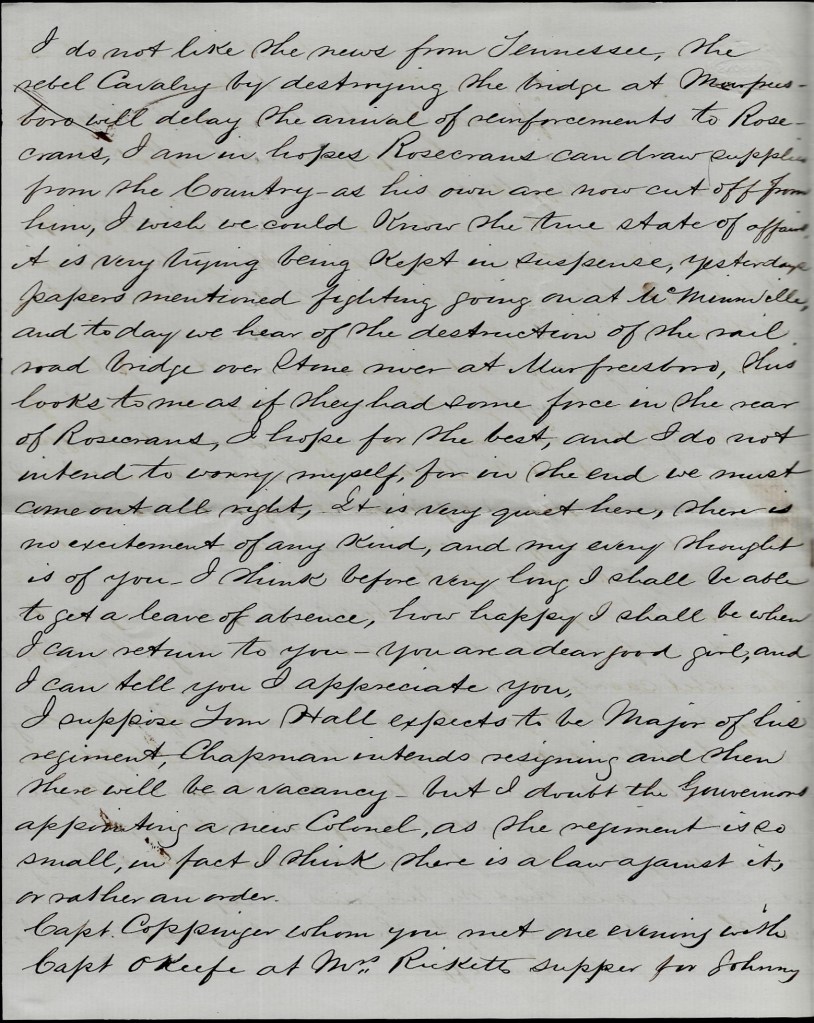 I do not like the news from Tennessee, the
rebel Cavalry by destroying the bridge at Murfrees-
boro will delay the arrival of reinforcements to Rose-
crans, I am in hopes Rosecrans can draw supplies
from the Country - as his own are now cut off from
him, I wish we could Know the true state of affairs
it is very trying being Kept in suspense, yesterdays
papers mentioned fighting going on at McMinnville,
and today we hear of the destruction of the rail
road bridge over Stone river at Murfreesboro, this
looks to me as if they had some force in the rear
of Rosecrans, I hope for the best, and I do not
intend to worry myself, for in the end we must
come out all right, It is very quiet here, there is
no excitement of any Kind, and my every thought
is of you - I think before very long I shall be able
to get a leave of absence, how happy I shall be when
I can return to you - you are a dear good girl, and
I can tell you I appreciate you,
I suppose Tom Hall expects to be Major of his
regiment, Chapman intends resigning and then
there will be a vacancy - but I doubt the Gouvernors
appointing a new Colonel, as the regiment is so
small, in fact I think there is a law against it,
or rather an order.
Capt. Coppinger whom you met one evening with
Capt OKeefe at Mrs Ricketts supper for Johnny